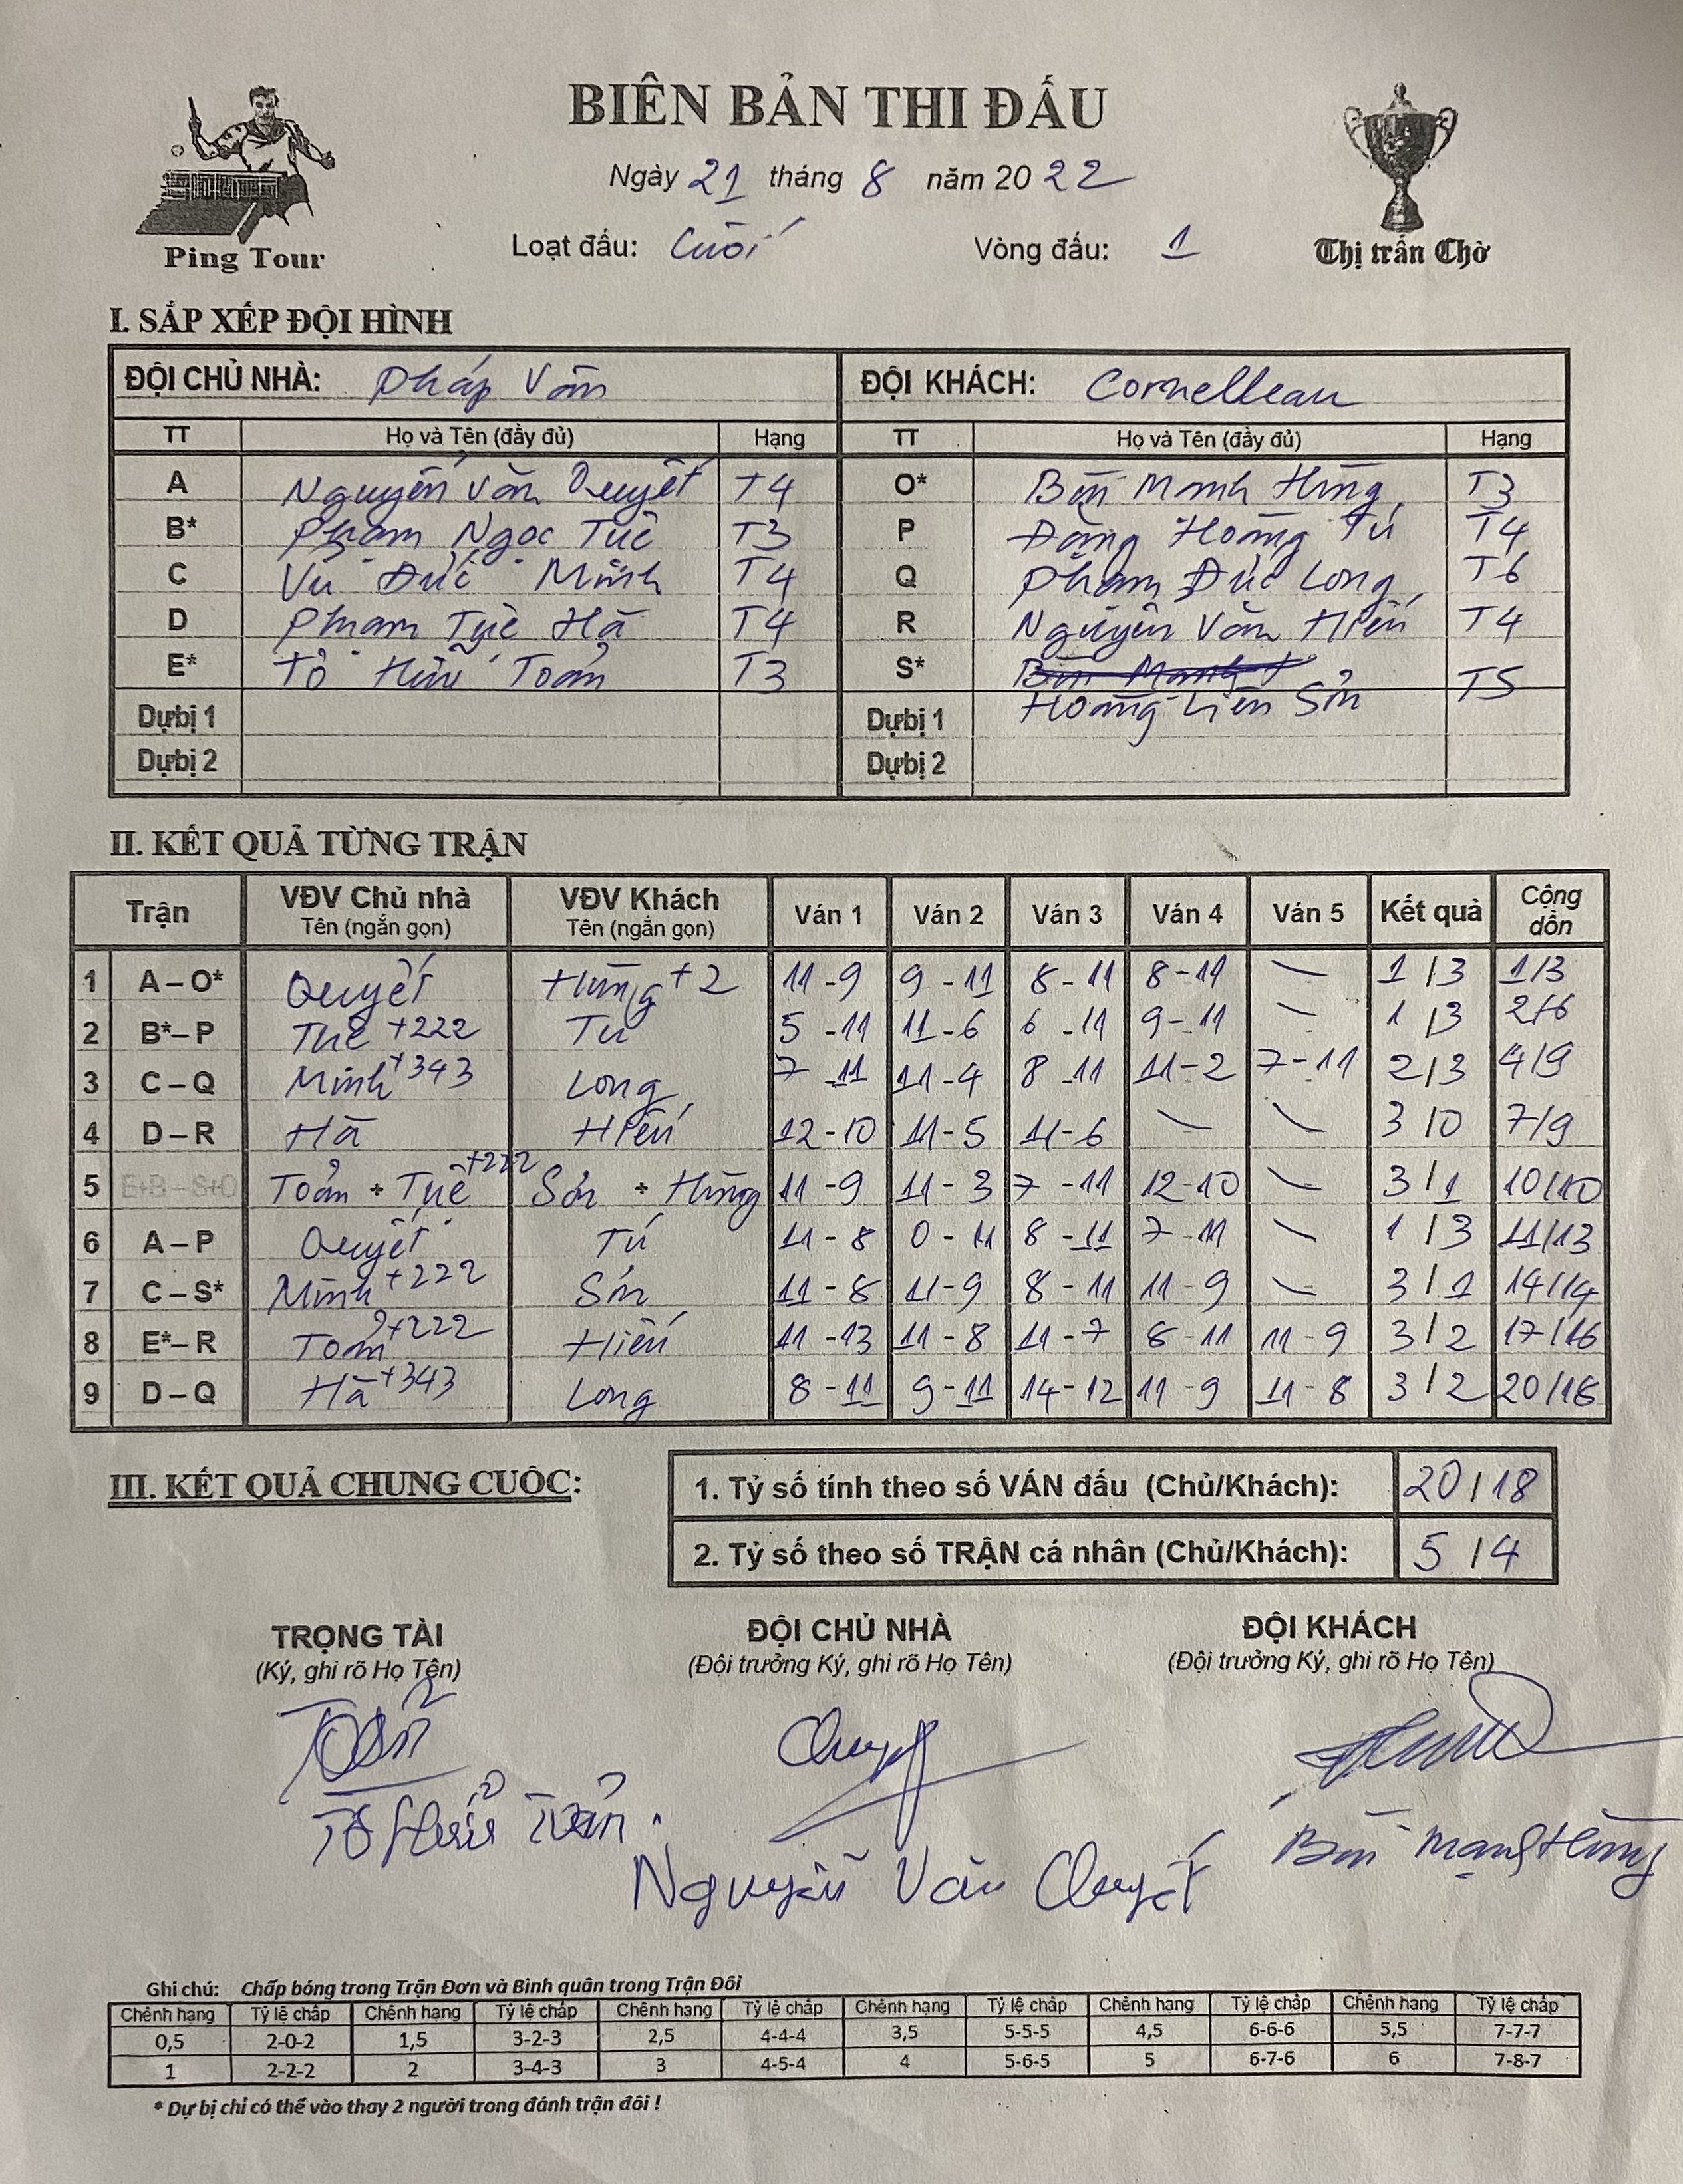 BIÊN BẢN THI ĐẤU
Ngày 21 tháng 8 năm 2022
Ping Tour
Loạt đấu: Cuối Vòng đấu: 1
Thị trấn Chờ
I. SẮP XẾP ĐỘI HÌNH
ĐỘI CHỦ NHÀ: Pháp Vân ĐỘI KHÁCH: Cornelleau
TT Họ và Tên (đầy đủ) Hạng TT Họ và Tên (đầy đủ) Hạng
A Nguyễn Văn Quyết T4 O* Bùi Mạnh Hùng T3
B* Phạm Ngọc Tuệ T3 P Đặng Hoàng Tú T4
C Vũ Đức Minh T4 Q Phạm Đức Long T6
D Phạm Tuệ Hà T4 R Nguyễn Văn Hiến T4
E* Tô Hữu Toản T3 S* Hoàng Liên Sơn T5
Dự bị 1 Dự bị 1
Dự bị 2 Dự bị 2
II. KẾT QUẢ TỪNG TRẬN
Trận VĐV Chủ nhà Tên (ngắn gọn) VĐV Khách Tên (ngắn gọn) Ván 1 Ván 2 Ván 3 Ván 4 Ván 5 Kết quả Cộng dồn
1 A – O* Quyết Hùng +2 11-9 9-11 8-11 8-11 — 1/3 1/3
2 B* – P Tuệ +222 Tú 5-11 11-6 6-11 9-11 — 1/3 2/6
3 C – Q Minh +343 Long 7-11 11-4 8-11 11-2 7-11 2/3 4/9
4 D – R Hà Hiến 12-10 11-5 11-6 — — 3/0 7/9
5 E+B – S+O Toản + Tuệ +222 Sơn + Hùng 11-9 11-3 7-11 12-10 — 3/1 10/10
6 A – P Quyết Tú 11-8 0-11 8-11 7-11 — 1/3 11/13
7 C – S* Minh +222 Sơn 11-8 11-9 8-11 11-9 — 3/1 14/14
8 E* – R Toản +222 Hiến 11-13 11-8 11-7 8-11 11-9 3/2 17/16
9 D – Q Hà +343 Long 8-11 9-11 14-12 11-9 11-8 3/2 20/18
III. KẾT QUẢ CHUNG CUỘC:
1. Tỷ số tính theo số VÁN đấu (Chủ/Khách): 20/18
2. Tỷ số theo số TRẬN cá nhân (Chủ/Khách): 5/4
TRỌNG TÀI ĐỘI CHỦ NHÀ ĐỘI KHÁCH
(Ký, ghi rõ Họ Tên) (Đội trưởng Ký, ghi rõ Họ Tên) (Đội trưởng Ký, ghi rõ Họ Tên)
Toản
Tô Hữu Toản
Nguyễn Văn Quyết
Bùi Mạnh Hùng
Ghi chú: Chấp bóng trong Trận Đơn và Bình quân trong Trận Đôi
Chênh hạng Tỷ lệ chấp Chênh hạng Tỷ lệ chấp Chênh hạng Tỷ lệ chấp Chênh hạng Tỷ lệ chấp Chênh hạng Tỷ lệ chấp Chênh hạng Tỷ lệ chấp
0,5 2-0-2 1,5 3-2-3 2,5 4-4-4 3,5 5-5-5 4,5 6-6-6 5,5 7-7-7
1 2-2-2 2 3-4-3 3 4-5-4 4 5-6-5 5 6-7-6 6 7-8-7
* Dự bị chỉ có thể vào thay 2 người trong đánh trận đôi !